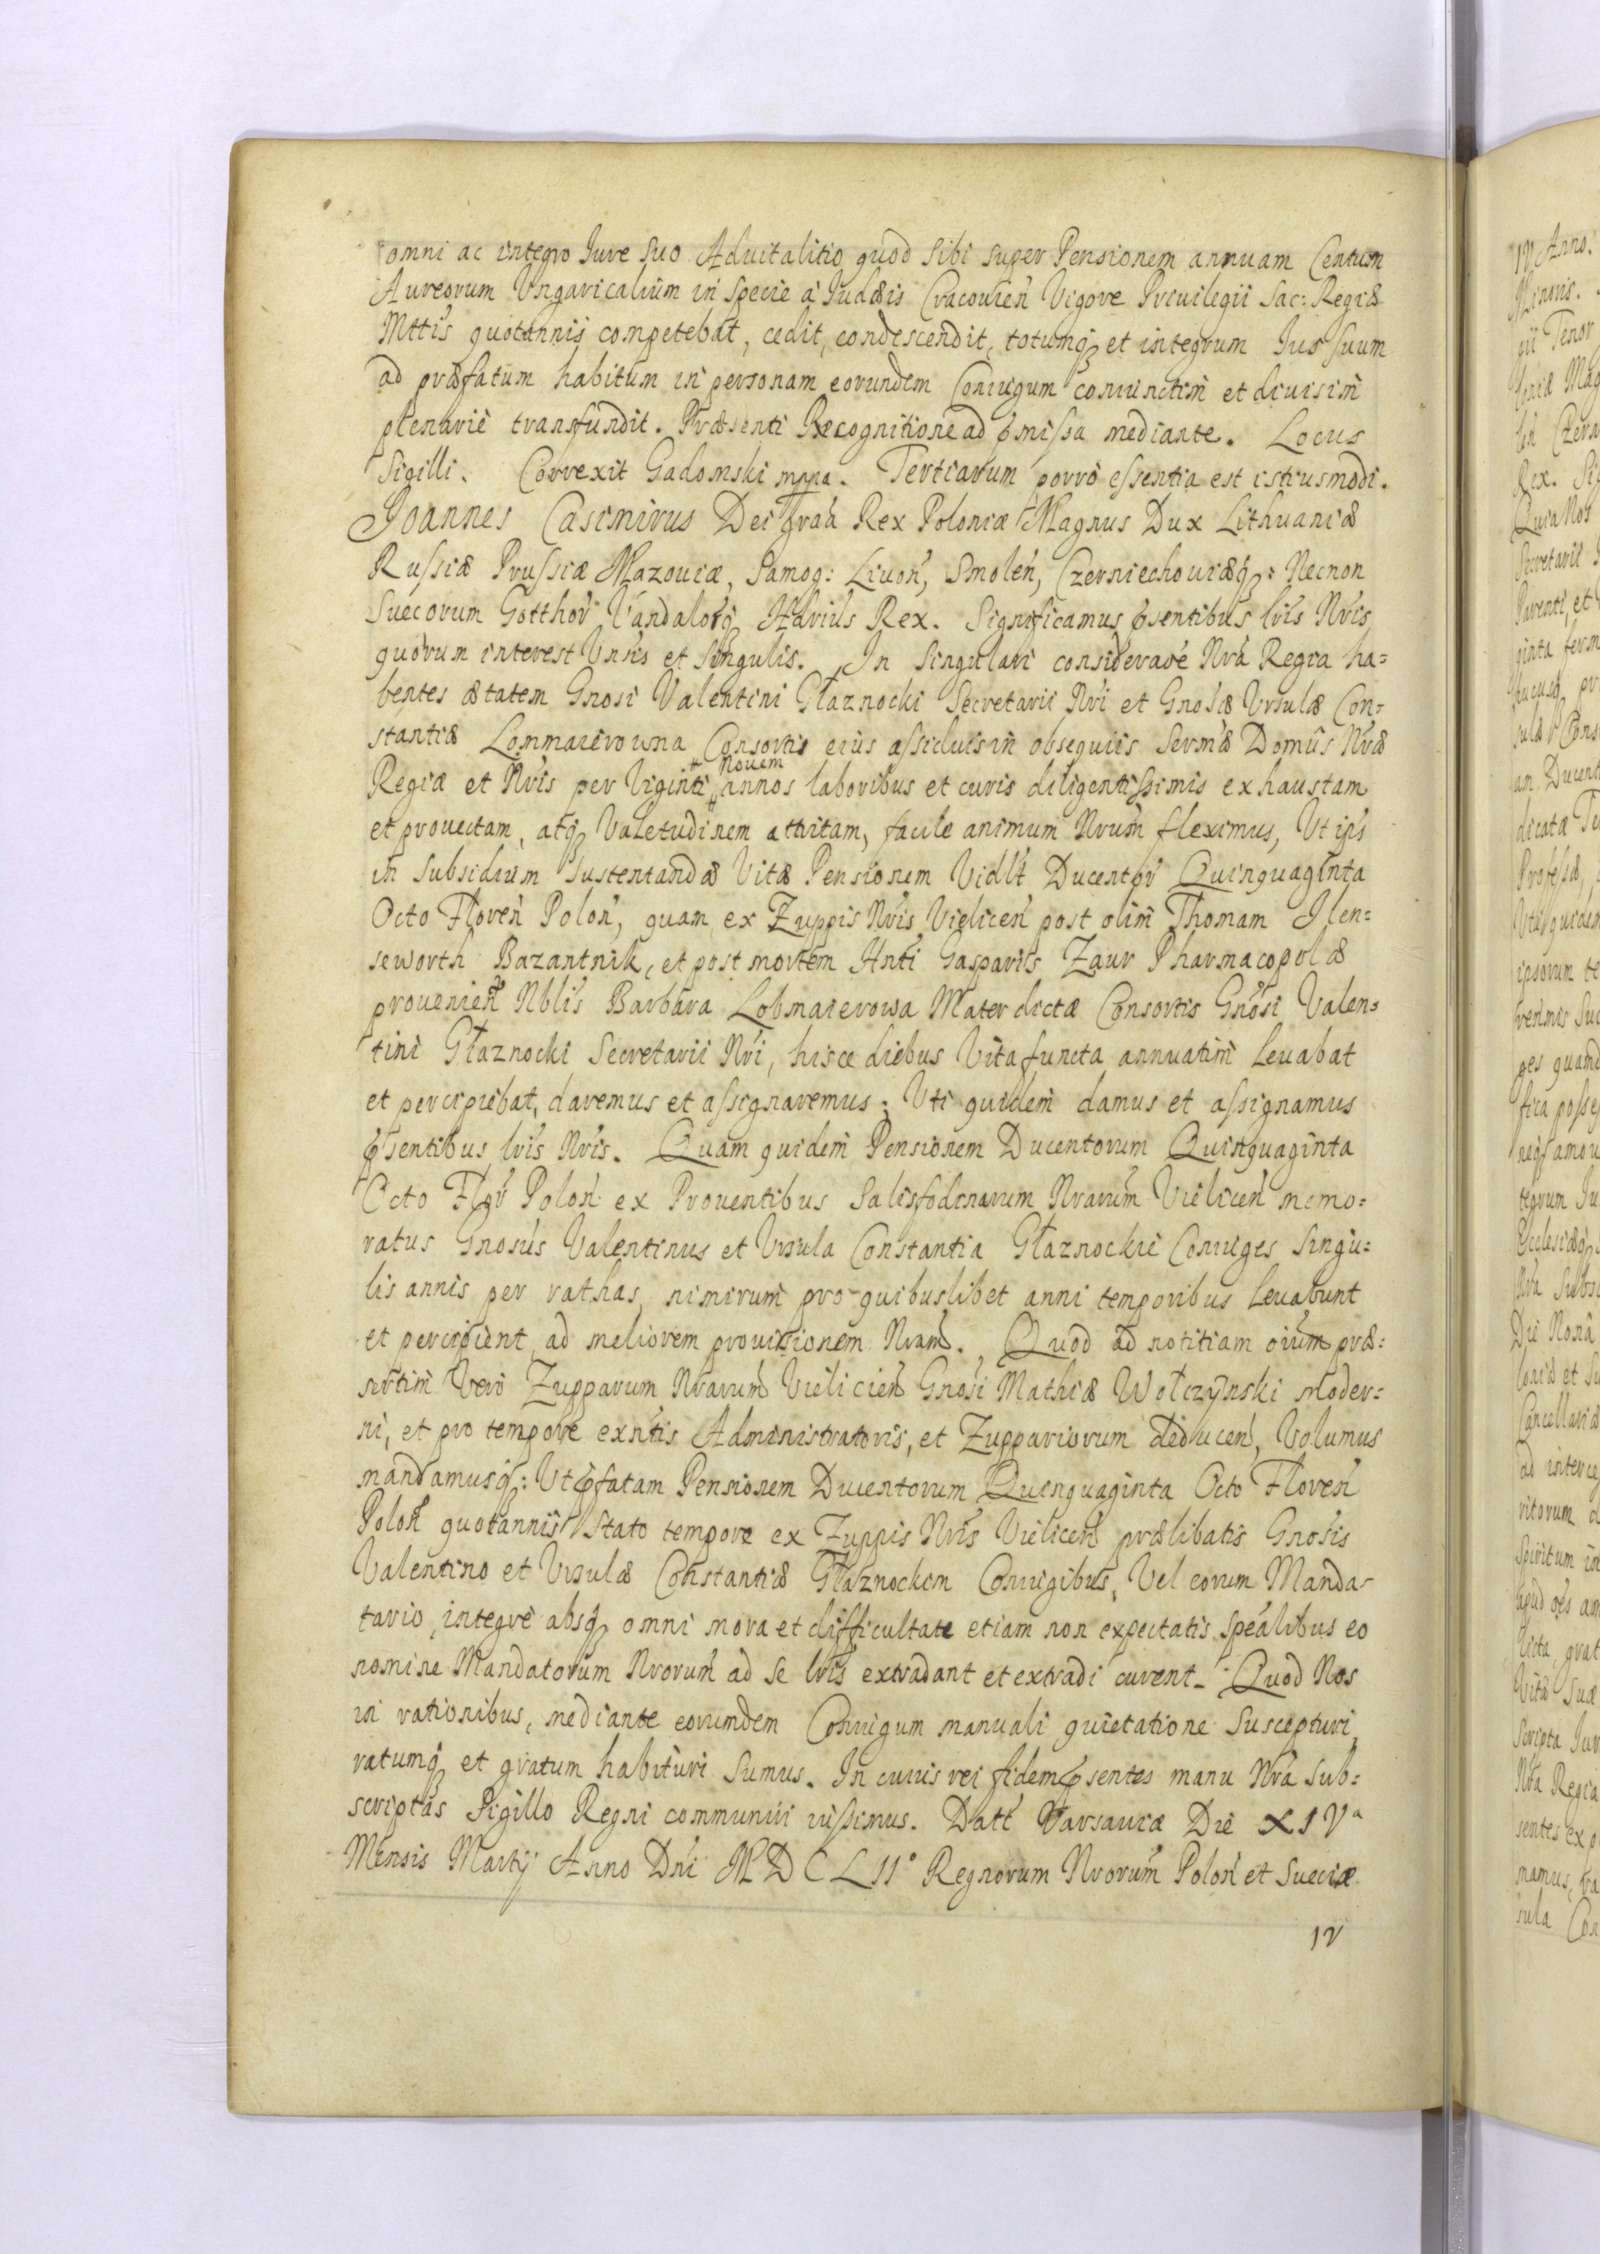 omni ac integro Iure suo Aduitalitio quod sibi super Pensionem annuam Centum
Aureorum Vngaricalium in specie à Iudæis Cracouien Vigore Priuilegii Sac: Regiæ
Mttis quotannis competebat, cedit, condescendit, totumq et integrum Ius suum
ad præfatum habitum in personam eorundem Coniugum coniunctim et diuisim
plenariè transfundit. Præsenti Recognitione ad pmissa mediante. Locus
Sigilli. Correxit Gadomski mppa. Tertiarum porrò essentia est istiusmodi.
Joannes Casimirus Dei gratia Rex Poloniæ Magnus Dux Lithuaniæ
Russiæ Prussiæ Mazouiæ, Samog: Liuon, Smolen, Czerniechouiæq: Necnon
Suecorum Gotthor Vandalorq Hærius Rex. Significamus psentibus lris Nris
quorum interest Vnsis et singulis. In singulari consideraoe Nra Regia ha=
bentes ætatem Gnosi Valentini Głaznocki Secretarii Nri et Gnosæ Vrsulæ Con=
stantiæ Lommaierowna Consortis eius assiduis in obsequiis Sermæ Domus Nræ
Regiæ et Nris per Viginti Nouem annos laboribus et curis diligentissimis exhaustam
et prouectam, atq Valetudinem attritam, facile animum Nrum fleximus, Vt ijs
in subsidium sustentandæ Vitæ Pensionem Vidlt Ducentor Quinquaginta
Octo Floren Polon, quam ex Zuppis Nris Vielicen post olim Thomam Ilen=
seworth Bazantnik, et post mortem Hnti Gasparis Zaur Pharmacopolæ
prouenien Nblis Barbara Lobmaierowa Mater dictæ Consortis Gnosi Valen=
tini Głaznocki Secretarii Nri, hisce diebus Vita functa annuatim leuabat
et percipiebat, daremus et assignaremus: Vti quidem damus et assignamus
psentibus lris Nris. Quam quidem Pensionem Ducentorum Quinquaginta
Octo Flor Polon: ex Prouentibus Salisfodinarum Nrarum Vielicen memo=
ratus Gnosus Valentinus et Vrsula Constantia Głaznockie Coniuges singu=
lis annis per rathas nimirum pro quibuslibet anni temporibus leuabunt
et percipient, ad meliorem prouisionem Nram. Quod ad notitiam oium præ=
sertim Vero Zupparum Nrarum Vielicien Gnosi Mathiæ Wołczynski moder=
ni, et pro tempore exntis Administratoris, et Zuppariorum deducen, Volumus
mandamusq: Vt pfatam Pensionem Ducentorum Quinquaginta Octo Floren
Polon quotannis stato tempore ex Zuppis Nris Vielicen prælibatis Gnosis
Valentino et Vrsulæ Constantiæ Głaznockim Coniugibus, Vel eorum Manda-
tario, integrè absq omni mora et difficultate etiam non expectatis spealibus eo
nomine Mandatorum Nrorum ad se lris extradant et extradi curent. Quod Nos
in rationibus, mediante eorumdem Coniugum manuali quietatione suscepturi,
ratumq et gratum habituri sumus. In cuius rei fidem psentes manu Nra sub=
scriptas Sigillo Regni communiri iussimus. Datt Varsauiæ Die XIVa
Mensis Martij Anno Dni MDCLIIo Regnorum Nrorum Polon et Sueciæ
IV